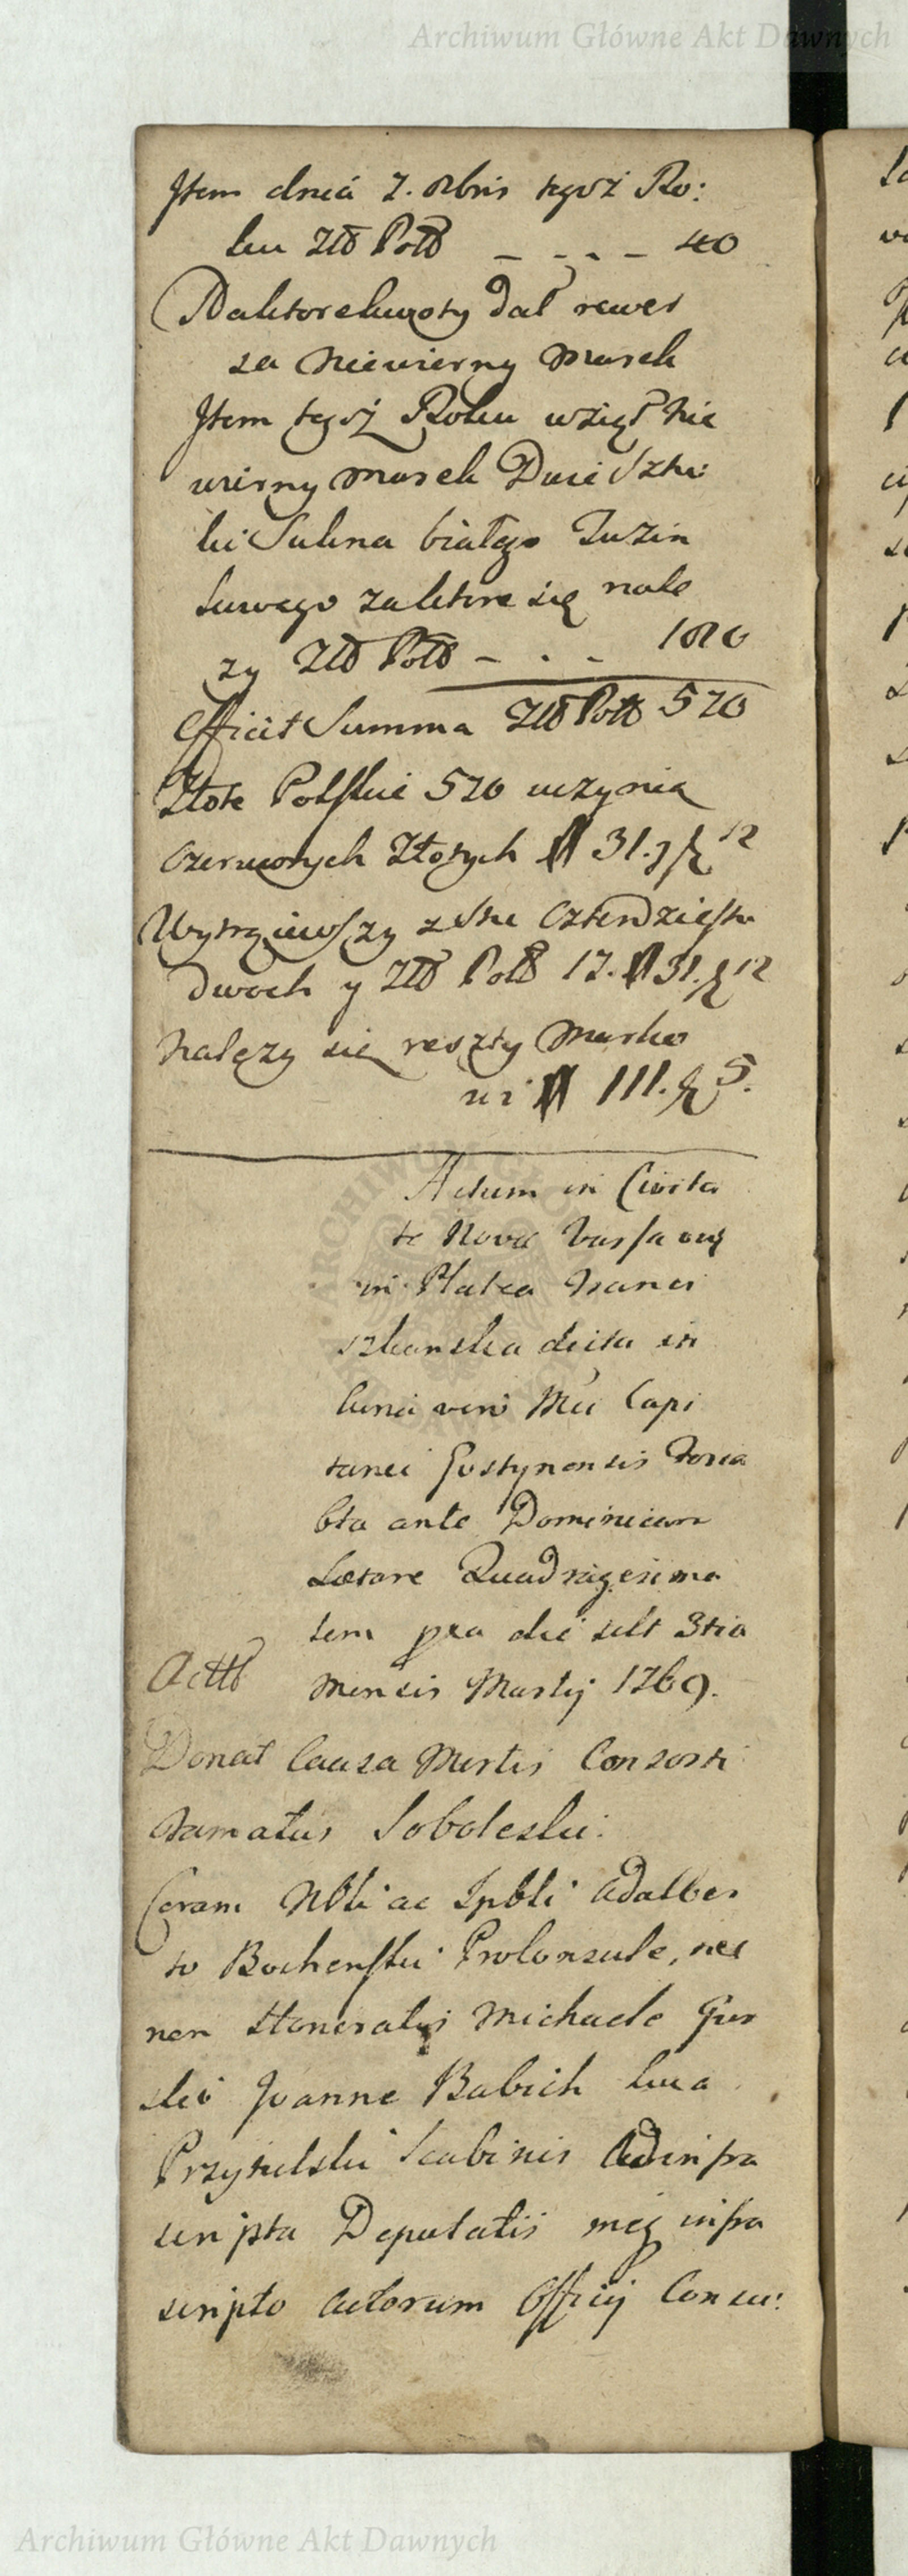 Archiwum Główne Akt Dawnych
Item dnia 7. Xbris tegoż Ro:
ku Złł Poll - - - - 40
Na ktore kwoty dał rewer
sa Niewierny Marek
Item tegoż Roku wziął Nie
wierny Marek Dwie Sztu
ki Sukna białego Tuzin
kowego za ktore się nale
zy Złł Poll - . -
Efficit Summa Złł Poll 520
Złote Polskie 520 uczynią
Czerwonych Złotych # 31.
Wytrąciwszy z Stu Czterdziestu
dwoch y Złł Poll 17. # 31.
Należy się reszty Marko
wi # 111. 5.
Actum in Civita
te Nova Varsavię
in Platea Franci
szkanska dicta in
Curia
Capi
tanei Gostynensis Feria
6ta ante Dominicam
Lætare Quadragesima
lem pra die scilt 3tia
mensis Martij 1769.
Donat Causa Mortis Consorti
Famatus Soboleski.
Coram Nbli ac Spbli Adalber
to Bochenski Proconsule, nec
non Honoratis Michaele Gur
ski Joanne Babich Luca
Przytulski Scabinis Ad infra
scripta Deputatis meq infra
scripto Actorum Officij Consu:
Archiwum Główne Akt Dawnych